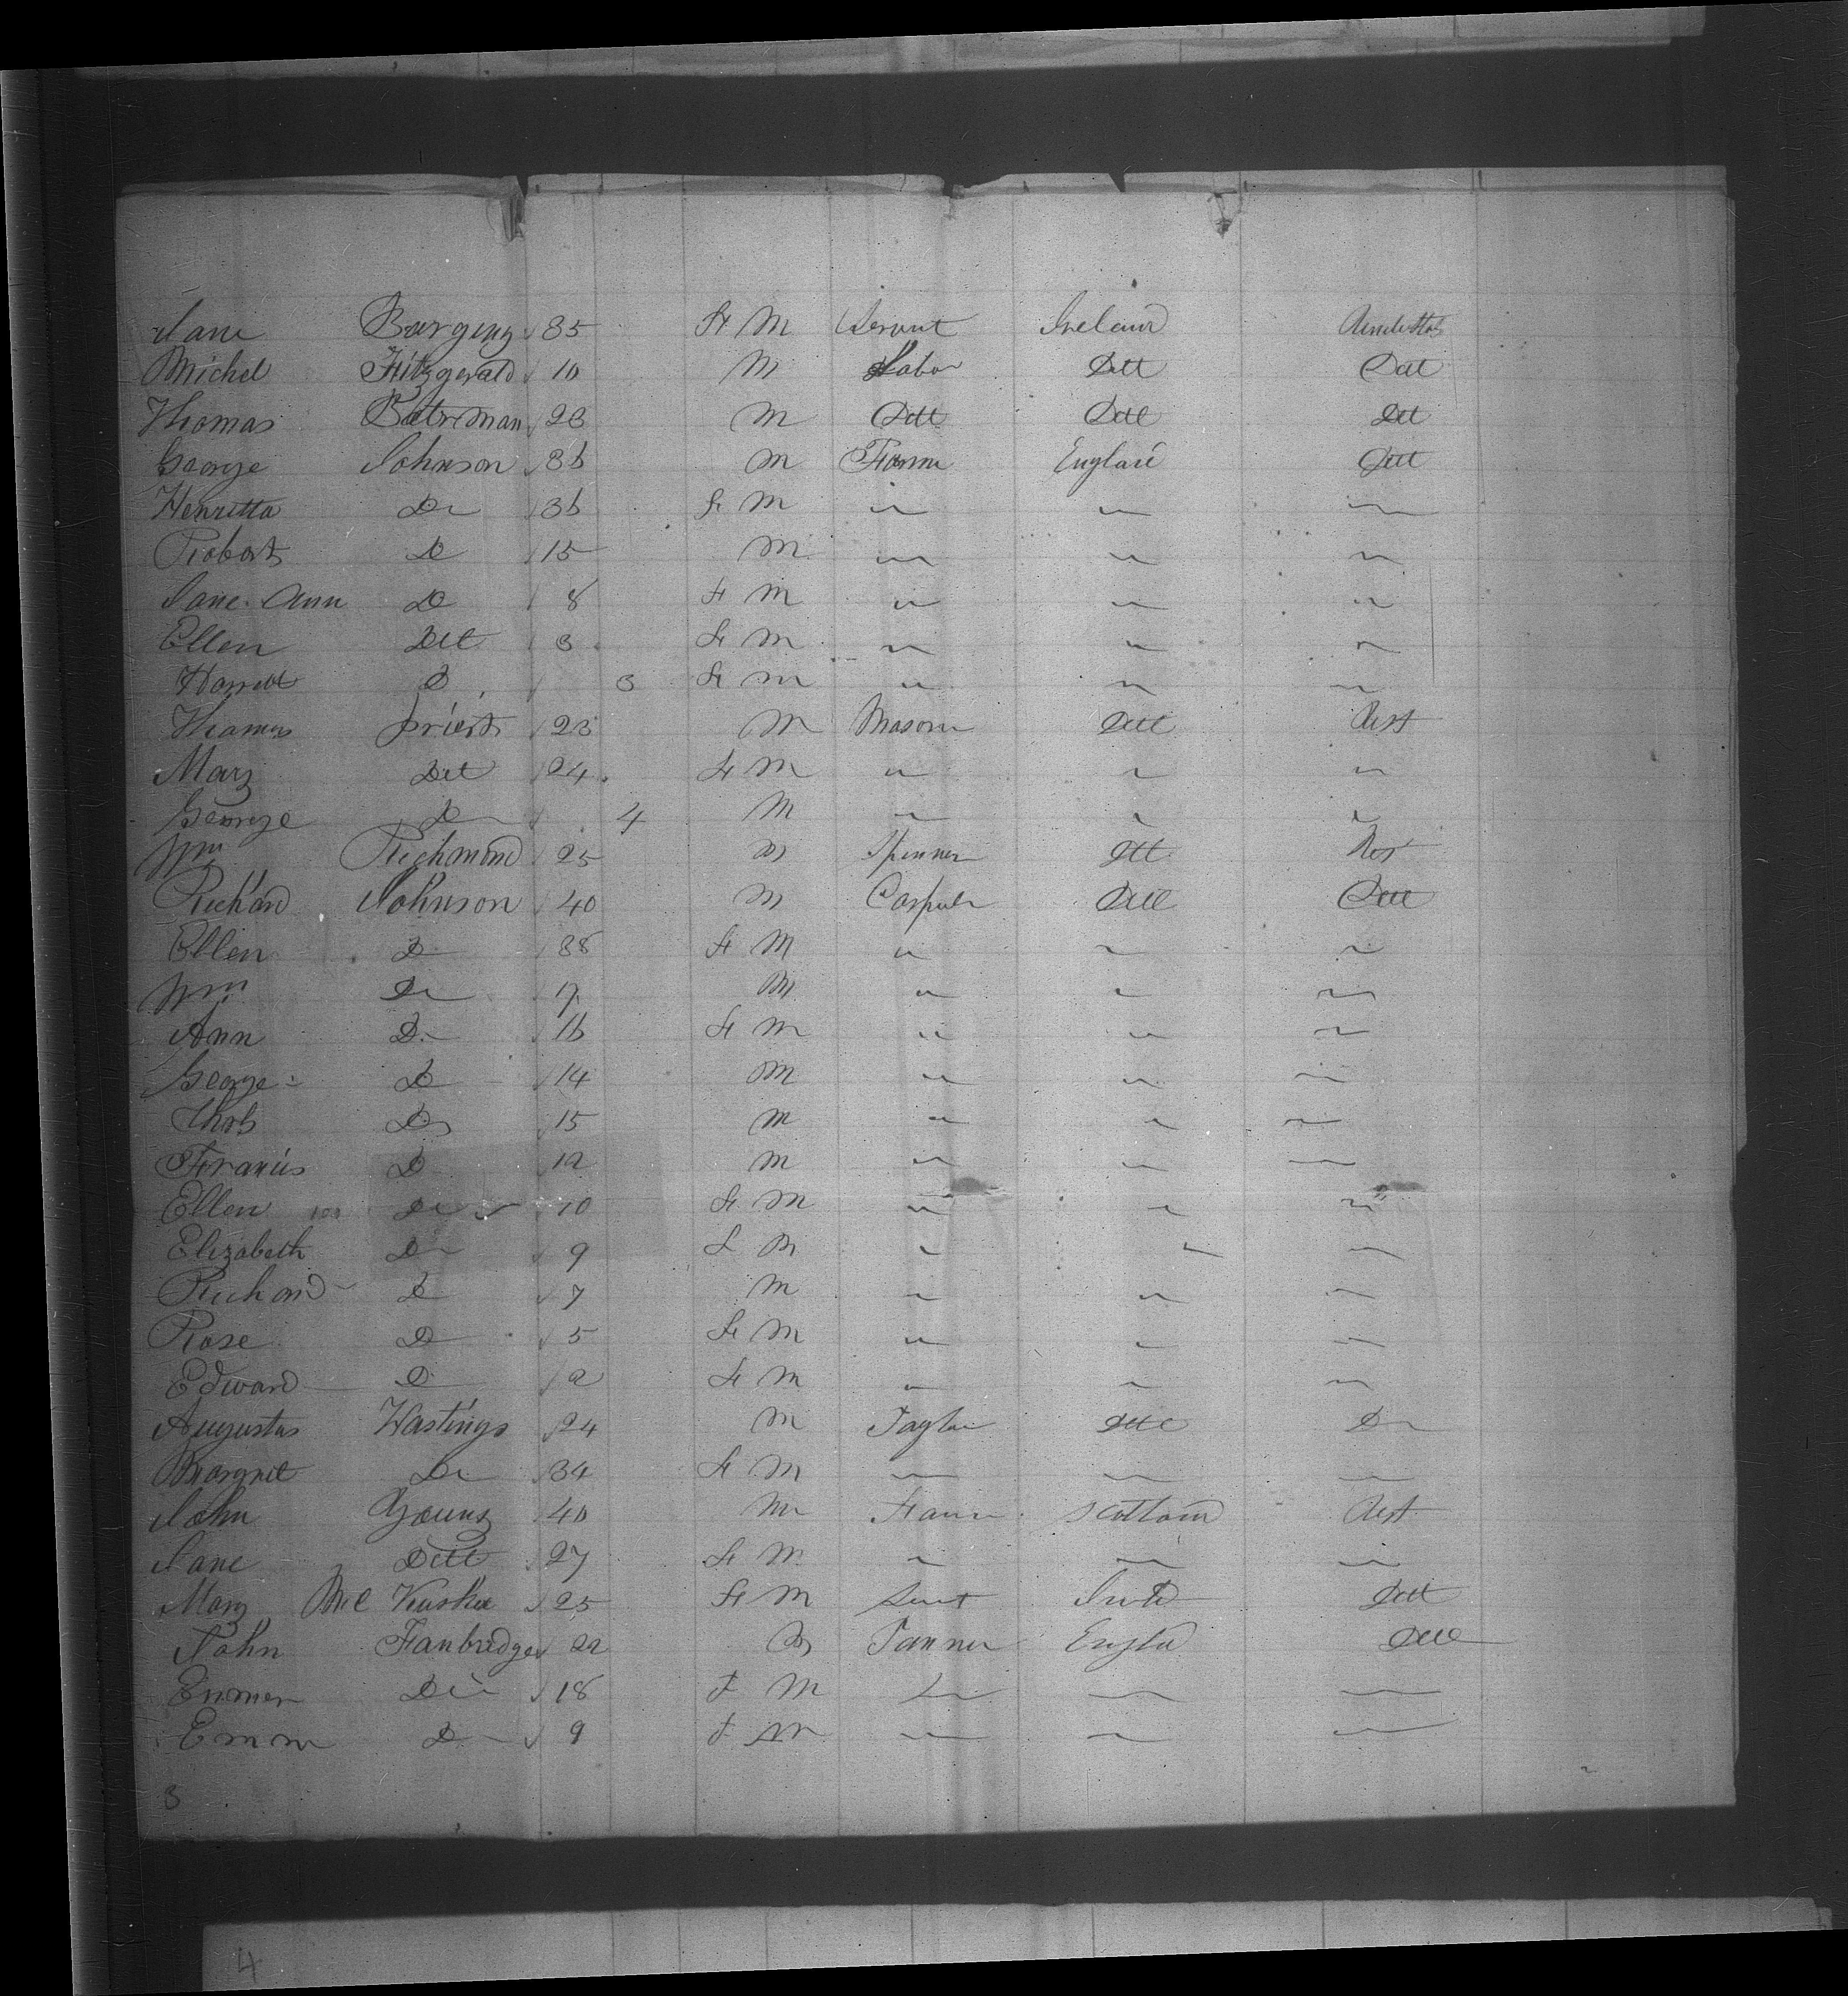 Jane 35 F M Servnt Ireland
Michel Fitzgerald 10 M Labor Ditt Ditt
Thomas Bateman 23 M Ditt Ditt Ditt
George Johnson 36 M Farm England Ditt
Henretta Do 36 F M
Robert Do 15 M
Jane Ann Do 8 F M
Ellen Ditt 3 F M
Harriett D 3 F M
Thomas Priest 23 M Mason Ditt
Mary Ditt 24 F M
George Do 4 M
Wm Richmond 25 M Spinner Ditt
Richard Johnson 40 M Ditt Ditt
Ellen D 38 F M
Wm Do 17 M
Ann D 16 F M
George D 14 M
Thos Do 15 M
Francis D 12 M
Ellen Do 10 F M
Elizabeth Do 9 F M
Richard D 7 M
Rose D 5 F M
Edward D 2 F M
Augustus Hastings 24 M Taylor Ditt Do
Margret Do 34 F M
John Young 40 M Farm Scotland
Jane Ditt 27 F M
Mary Mc 25 F M Ditt
John 22 M Tanner Engld Ditt
Do 18 F M
Emm D 9 F M
3
4